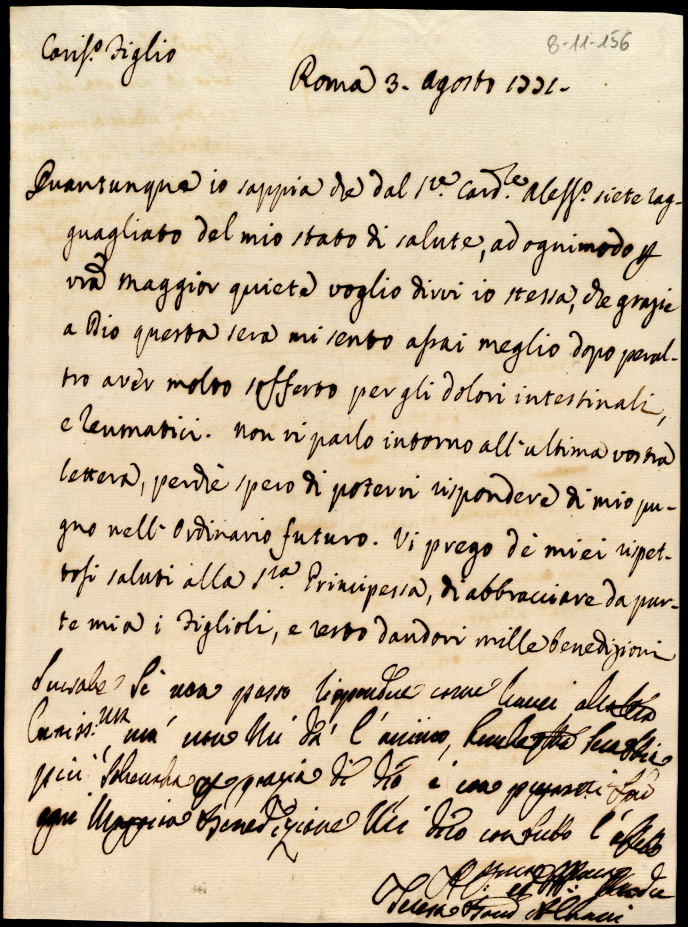 Cariss.o Figlio
8-11-156
Roma 3. Agosto 1771.
Quantunque io sappia che dal S.re Card.le Aless.o siete rag-
guagliato del mio stato di salute, ad ogni modo p
vra maggior quiete voglio dirvi io stessa, che grazie
a Dio questa sera mi sento assai meglio dopo peral-
tro aver molto sofferto per gli dolori intestinali,
e reumatici. Non vi parlo intorno all'ultima vostra
lettera, perchè spero di potervi rispondere di mio pu-
gno nell'Ordinario futuro. Vi prego de miei rispet-
tosi saluti alla S.ra Principessa, di abbracciare da par-
te mia i Figlioli, e resto dandovi mille benedizioni
Se non posso rispondere come
ma non mi dà l'animo,
più grazia di Dio, e con
ogni Benedizione Mi dico con tutto l'affetto
Teresa Albani